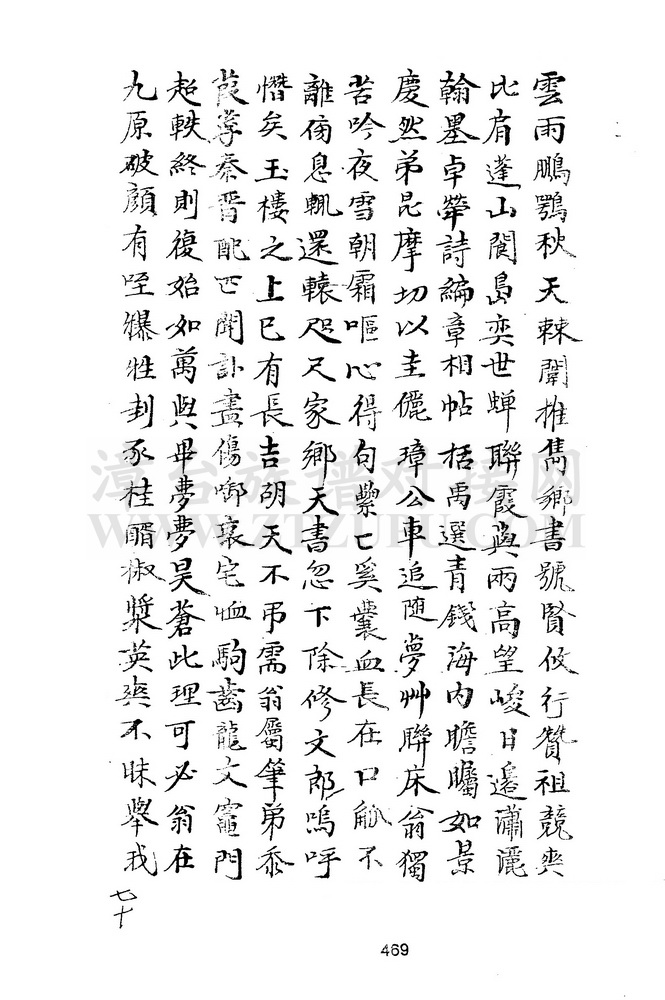 雲雨鵬鶚秋天棘闈推雋鄉書號賢攸行贊祖競爽
比肩蓬山閬島奕世蟬聯霞與兩高望峻日邊瀟灑
翰墨卓犖詩編章相帖括禹選青錢海內瞻矚如景
慶然弟昆摩切以圭儷璋公車追隨夢艸聯床翁獨
苦吟夜雪朝霜嘔心得句纍亡奚囊血長在口觚不
離衛息輒還轅咫尺家鄉天書忽下除修文郎嗚呼
憯矣玉樓之上已有長吉胡天不弔需翁屬筆弟忝
葭莩秦晉配匹聞訃盡傷啣哀宅恤駒齒龍文竈門
超軼終則復始如萬與畢夢夢昊蒼此理可必翁在
九原破顏有咥爆牲刲豕桂醑椒漿英爽不昧舉我
七十
469
漳台族谱对接网
WWW.ZTZUPU.COM